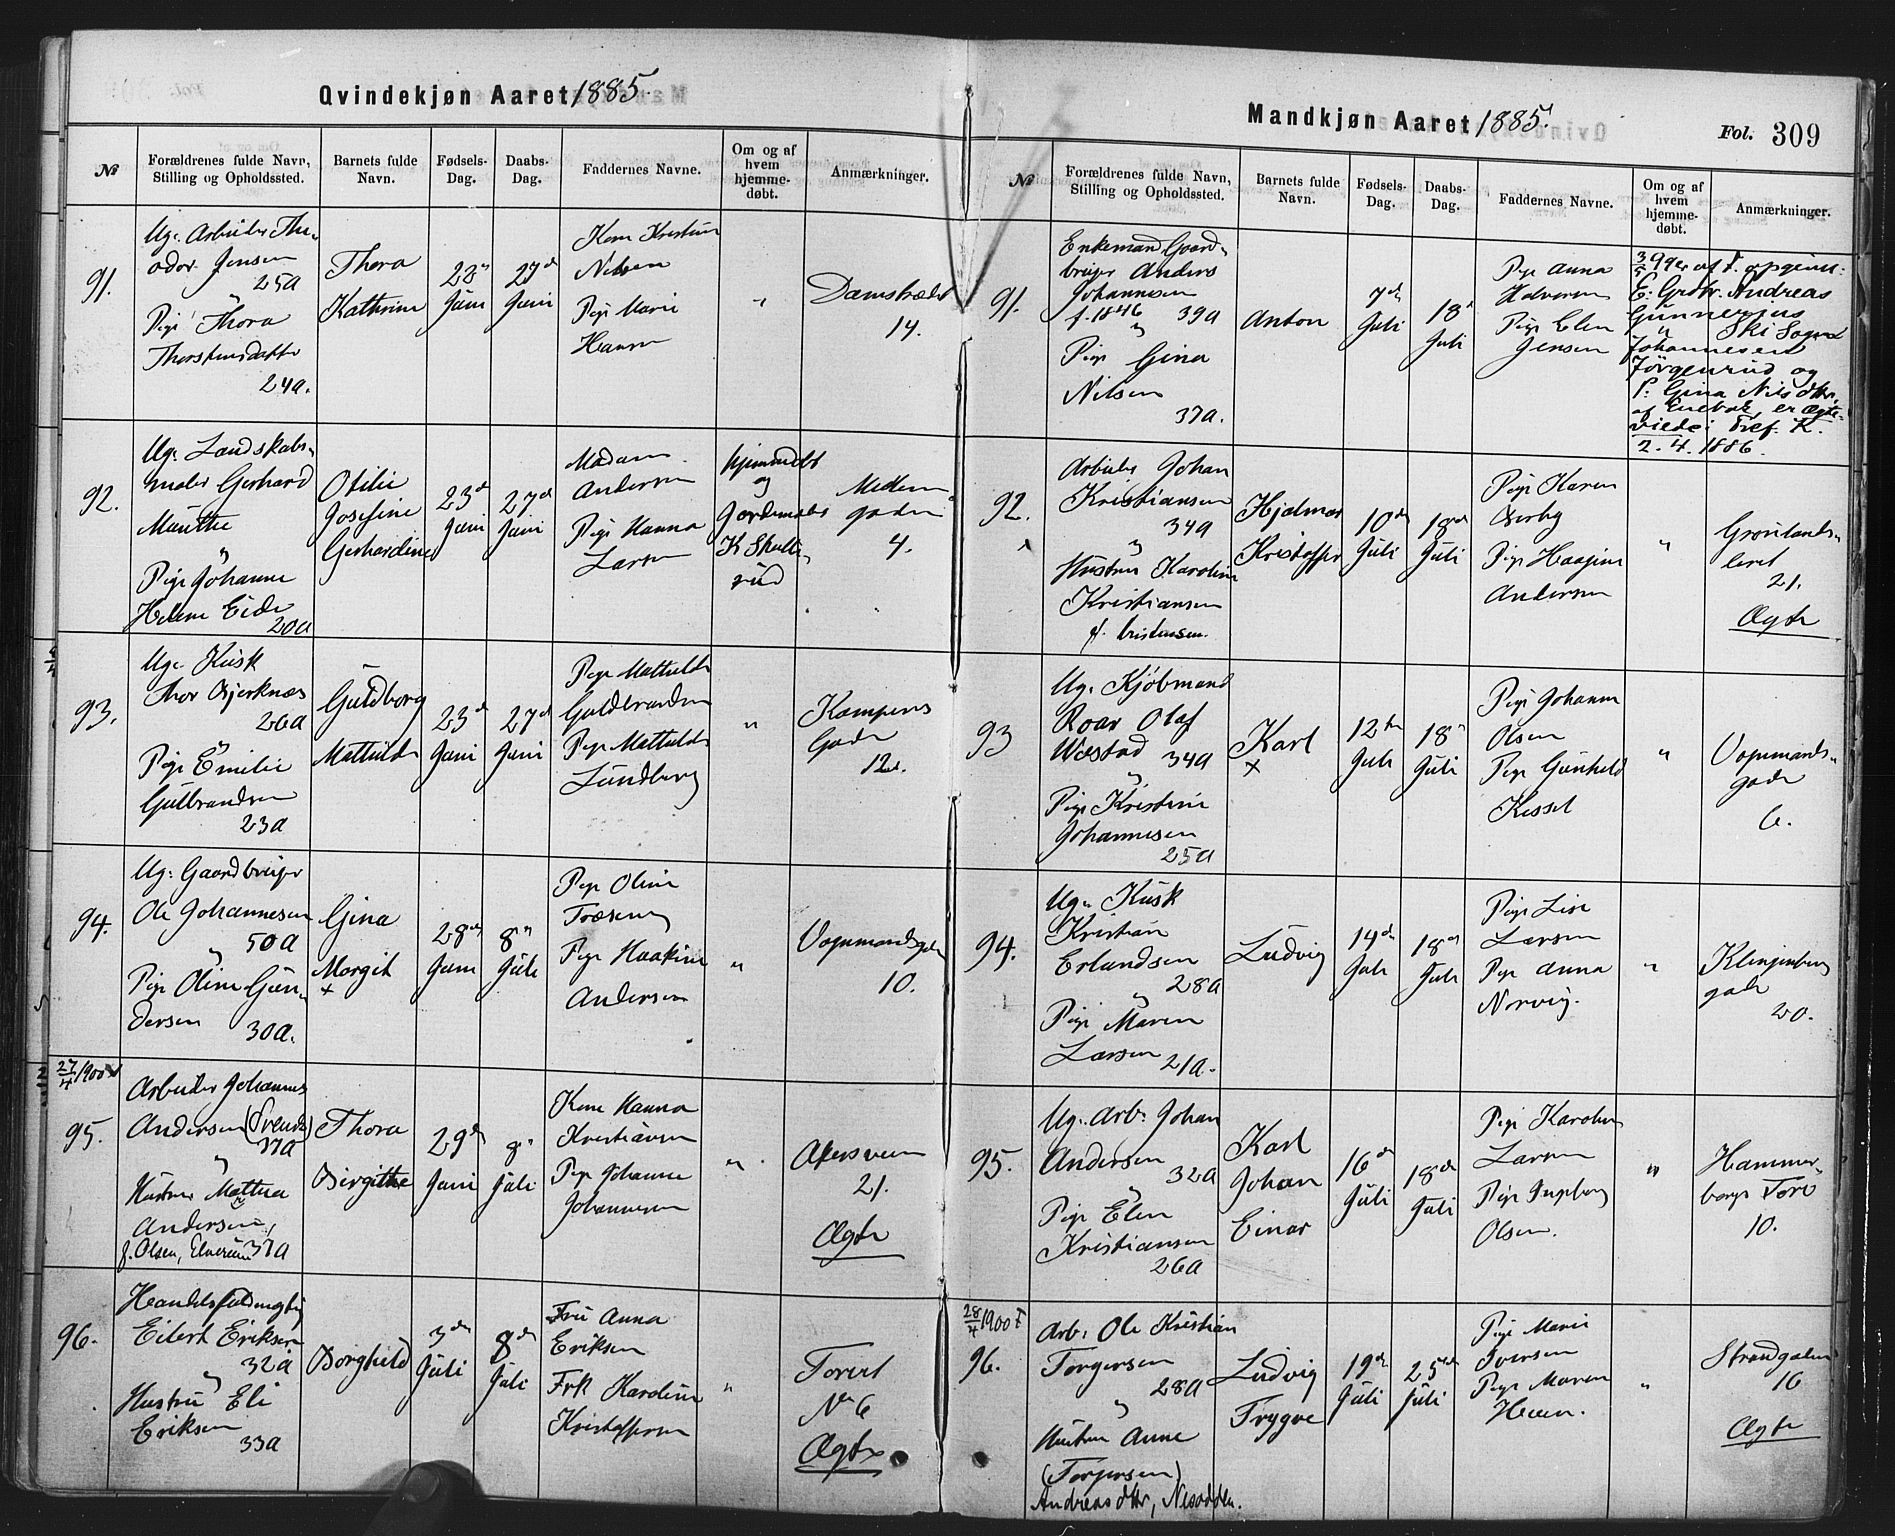 Qvindekjøn Aaret 1885.
№
Forældrenes fulde Navn,
Stilling og Opholdssted.
Barnets fulde
Navn.
Fødsels-
Dag.
Daabs-
Dag.
Faddernes Navne.
Om og af
hvem
hjemme-
døbt.
Anmærkninger.
91.
Ug. Arbeider The-
odor Jensen
25a
"
Pige Thora
Thorstensdatter
24a.
Thora
Kathrine
Juni
27d
Juni
Kone Kristine
Nilsen
Pige Marie
Hansen
"
Damstrædet
14.
92.
Ug. Landskabs-
maler Gerhard
Munthe
"
Pige Johanne
Helene Eide
20a
Otilie
Josefine
Gerhardine
23d
Juni
27d
Juni
Madam
Andersen
Pige Hanna
Larsen
hjemmedøbt
og
Jordemoder
K
4.
93.
Ug. Kusk
Thor Bjerknæs
26a
"
Pige Emilie
Gulbrandsen
23a
Guldborg
Mathilde
23d
Juni
27d
Juni
Pige Mathilde
Guldbrandsen
Pige Mathilde
Lundberg
"
Kampens
Gade
12.
94.
Ug. Gaardbruger
Ole Johannesen
50a
"
Pige Oline Gun-
dersen
30a.
Gina
Margit
×
28de
Juni
8de
Juli
Pige Oline
Pige Haakine
Andersen
"
Vognmandsgade
10.
27/4 1900
95.
Arbeider Johannes
Andersen (Svendn)
37a
"
Hustru Mathea
Andersen,
f. Olsen, Elverum 37a
Thora
Birgitte
29de
Juni
8
Juli
Kone Hanna
Kristiansen
Pige Johanne
Johannesen
"
Akersveien
21.
Ægte
96.
Handelsfuldmægtig
Eilert Eriksen
32a
"
Hustru Eli
Eriksen
33a
Borghild
3de
Juli
8de
Juli
Fru Anna
Eriksen
Frk Karoline
Kristoffersen
"
Torvet
No 6
Ægte
Mandkjøn Aaret 1885.
Fol. 309
№
Forældrenes fulde Navn,
Stilling og Opholdssted.
Barnets fulde
Navn.
Fødsels-
Dag.
Daabs-
Dag.
Faddernes Navne.
Om og af
hvem
hjemme-
døbt.
Anmærkninger.
91.
Enkemand Gaard-
bruger Anders
Johannesen
f. 1846 39a
"
Pige Gina
Nilsen
37a.
Anton
7de
Juli
18d
Juli
Pige Anna
Halvorsen
Pige Elen
Jensen
E: Grdbr. Andreas
Gunnerius
" Ski Sogn
Johannesen
Jørgenrud og
P. Gina Nilsdtr.
af Enebak, er Ægte-
viede i Tref. K.
2.4.1886.
92.
Arbeider Johan
Kristiansen
34a
"
Hustru Karoline
Kristiansen
f. Cristensen.
Hjalmar
Kristoffer
10de
Juli
18de
Juli
Pige Karen
Osby
Pige Haagine
Andersen
"
Grønlands-
leret
21.
Ægte
93
Ug. Kjøbmand
Roar Olaf
Wæstad 34a
"
Pige Kristine
Johannesen
25a
Karl
×
12te
Juli
18
Juli
Pige Johanne
Olsen
Pige Gunhild
Kessel
"
Vognmands-
gade
6.
94.
Ug. Kusk
Kristian
Erlandsen
28a
"
Pige Maren
Larsen 21a.
Ludvig
14de
Juli
18de
Juli
Pige Lise
Larsen
Pige Anna
Norvig.
"
Klingenberg
gade
20.
95.
Ug. Arb. Johan
Andersen
32a
"
Pige Elen
Kristiansen
26a
Karl
Johan
Einar
16de
Juli
18de
Juli
Pige Karoline
Larsen
Pige Ingeborg
Olsen.
"
Hammer-
borgs Torv
10.
28/4 1900 F
96.
Arb. Ole Kristian
Torgersen
28a
"
Hustru Anne
(Torgersen)
Andreasdtr, Nesodden.
Ludvig
Trygve
19de
Juli
25de
Juli
Pige Marie
Iversen
Pige Maren
Heen.
"
Strandgaden
16
Ægte